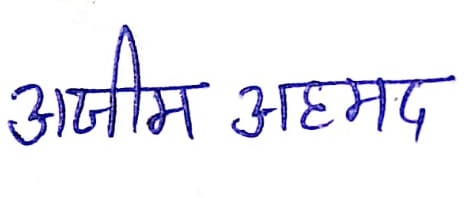 अजीम अहमद